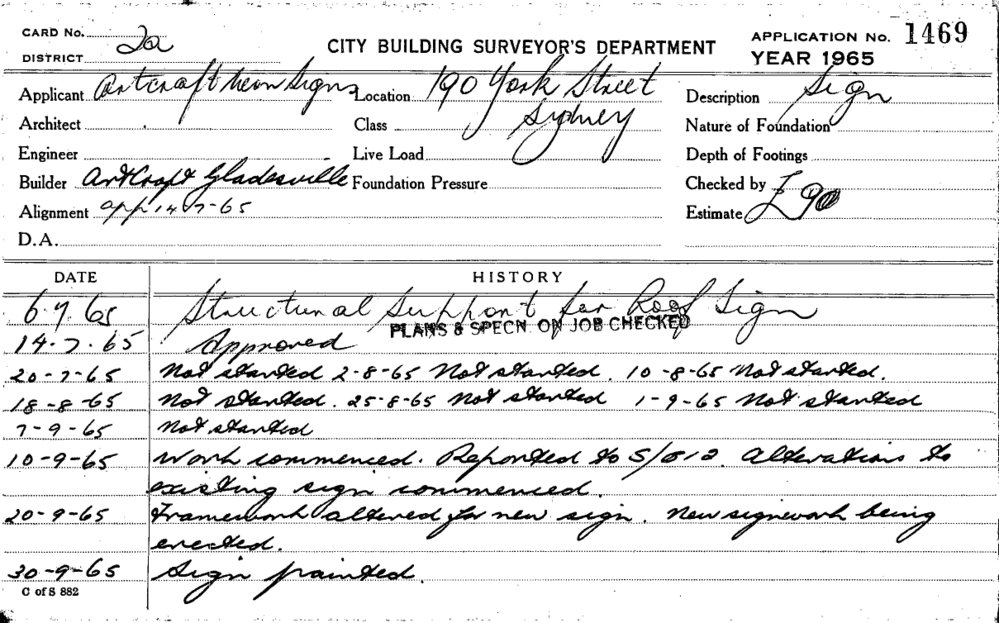 CARD No.
DISTRICT 2a
CITY BUILDING SURVEYOR'S DEPARTMENT
APPLICATION No. 1469
YEAR 1965
Applicant Artcraft Neon Signs Location 190 York Street Description Sign
Architect Class Sydney Nature of Foundation
Engineer Live Load Depth of Footings
Builder Artcraft Gladesville Foundation Pressure Checked by
Alignment app 14-7-65 Estimate £90
D.A.
DATE HISTORY
6.7.65 Structural Support for Roof Sign
PLANS & SPECN. ON JOB CHECKED
14.7.65 Approved
20-7-65 Not started 2-8-65 Not started. 10-8-65 Not started.
18-8-65 Not started. 25-8-65 Not started 1-9-65 Not started
7-9-65 Not started
10-9-65 Work commenced. Reported to Alterations to
existing sign commenced.
20-9-65 Framework altered for new sign. New signwork being
erected.
30-9-65 Sign painted.
C of S 882